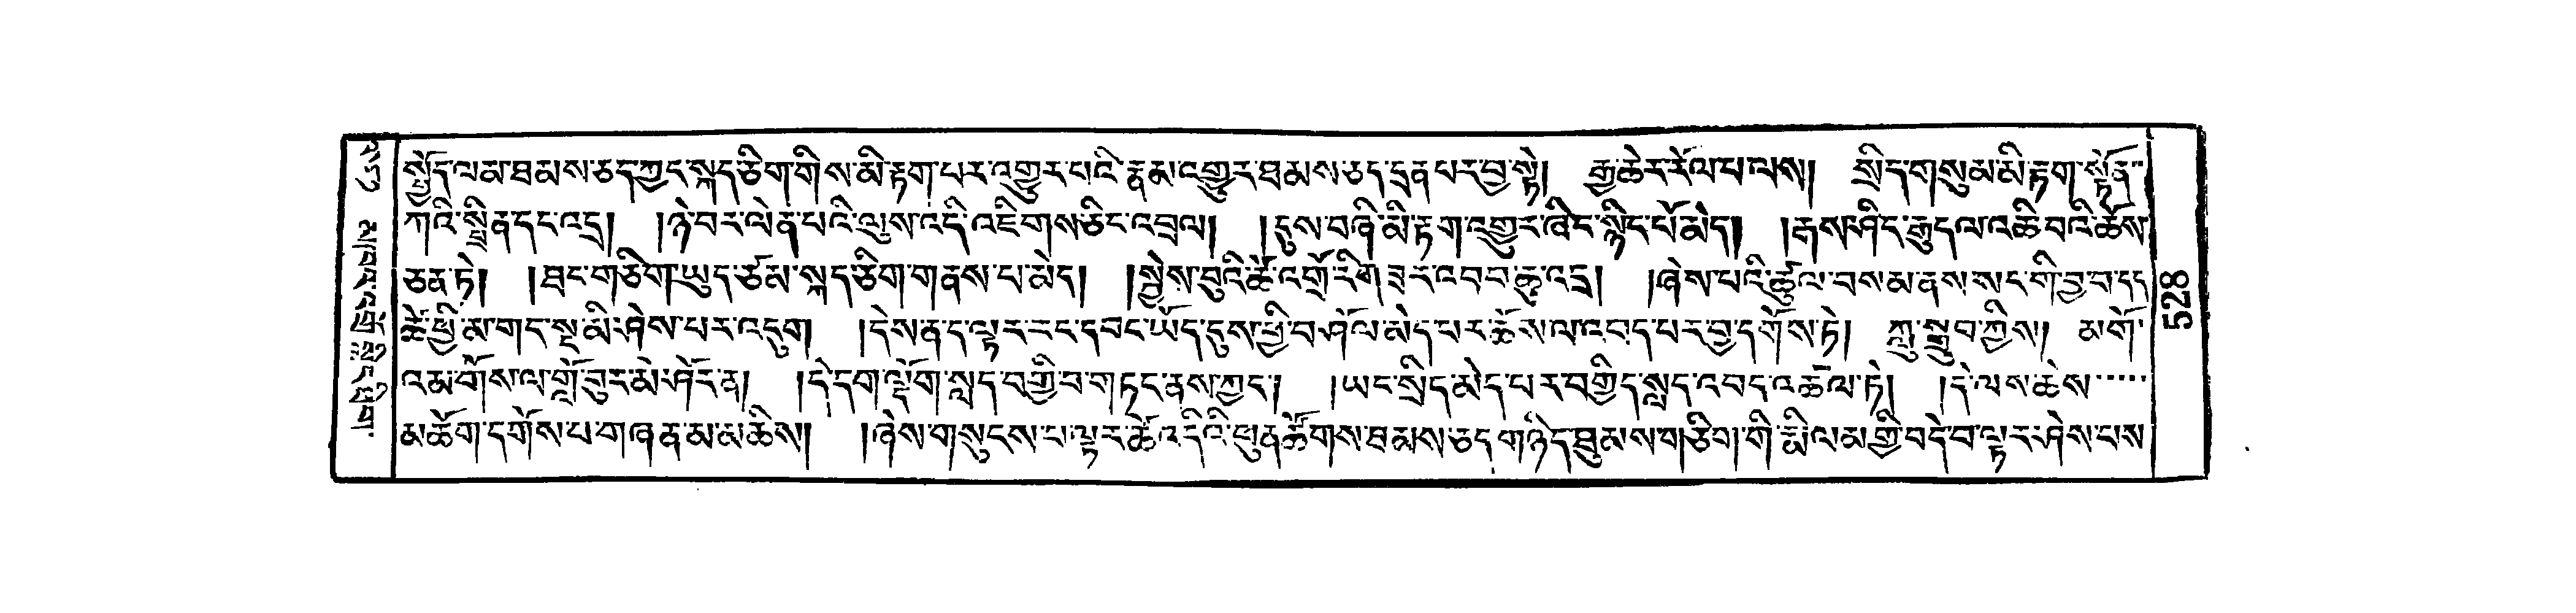 སྤྱོད་ལམ་ཐམས་ཅད་ཀྱང་སྐད་ཅིག་གིས་མི་རྟག་པར་འགྱུར་བའི་རྣམ་འགྱུར་ཐམས་ཅད་དྲན་པར་བྱ་སྟེ། རྒྱ་ཆེར་རོལ་པ་ལས། སྲིད་གསུམ་མི་རྟག་སྟོན་
ཀའི་སྤྲིན་དང་འདྲ། །ཉེ་བར་ལེན་པའི་ལུས་འདི་འཇིགས་ཅིང་འབྲལ། །དུས་བཞི་མི་རྟག་འགྱུར་ཞིང་སྙིང་པོ་མེད། །རྒས་ཤིང་རྒུད་ལ་འཆི་བའི་ཆོས་
ཅན་ཏེ། །ཐང་གཅིག་ཡུད་ཙམ་སྐད་ཅིག་གནས་པ་མེད། །སྐྱེས་བུའི་ཚེ་འགྲོ་རི་གཟར་འབབ་ཆུ་འདྲ། །ཞེས་པའི་ཚུལ་བསམ་ནས་སང་གི་བྱ་བ་དང་
ཚེ་ཕྱི་མ་གང་སྔ་མི་ཤེས་པར་འདུག །དེས་ན་ད་ལྟར་རང་དབང་ཡོད་དུས་ཕྱི་བཤོལ་མེད་པར་ཆོས་ལ་འབད་པར་བྱ་དགོས་ཏེ། ཀླུ་སྒྲུབ་ཀྱིས། མགོ་
འམ་གོས་ལ་གློ་བུར་མེ་ཤོར་ན། །དེ་དག་ལྡོག་སླད་བགྱི་བ་གཏང་ནས་ཀྱང་། །ཡང་སྲིད་མེད་པར་བགྱིད་སླད་འབད་འཚལ་ཏེ། །དེ་ལས་ཆེས་་་་་་
མཆོག་དགོས་པ་གཞན་མ་མཆིས། །ཞེས་གསུངས་པ་ལྟར་ཚེ་འདིའི་ཕུན་ཚོགས་ཐམས་ཅད་གཉིད་ཐུམས་གཅིག་གི་རྨི་ལམ་གྱི་བདེ་བ་ལྟར་ཤེས་པས